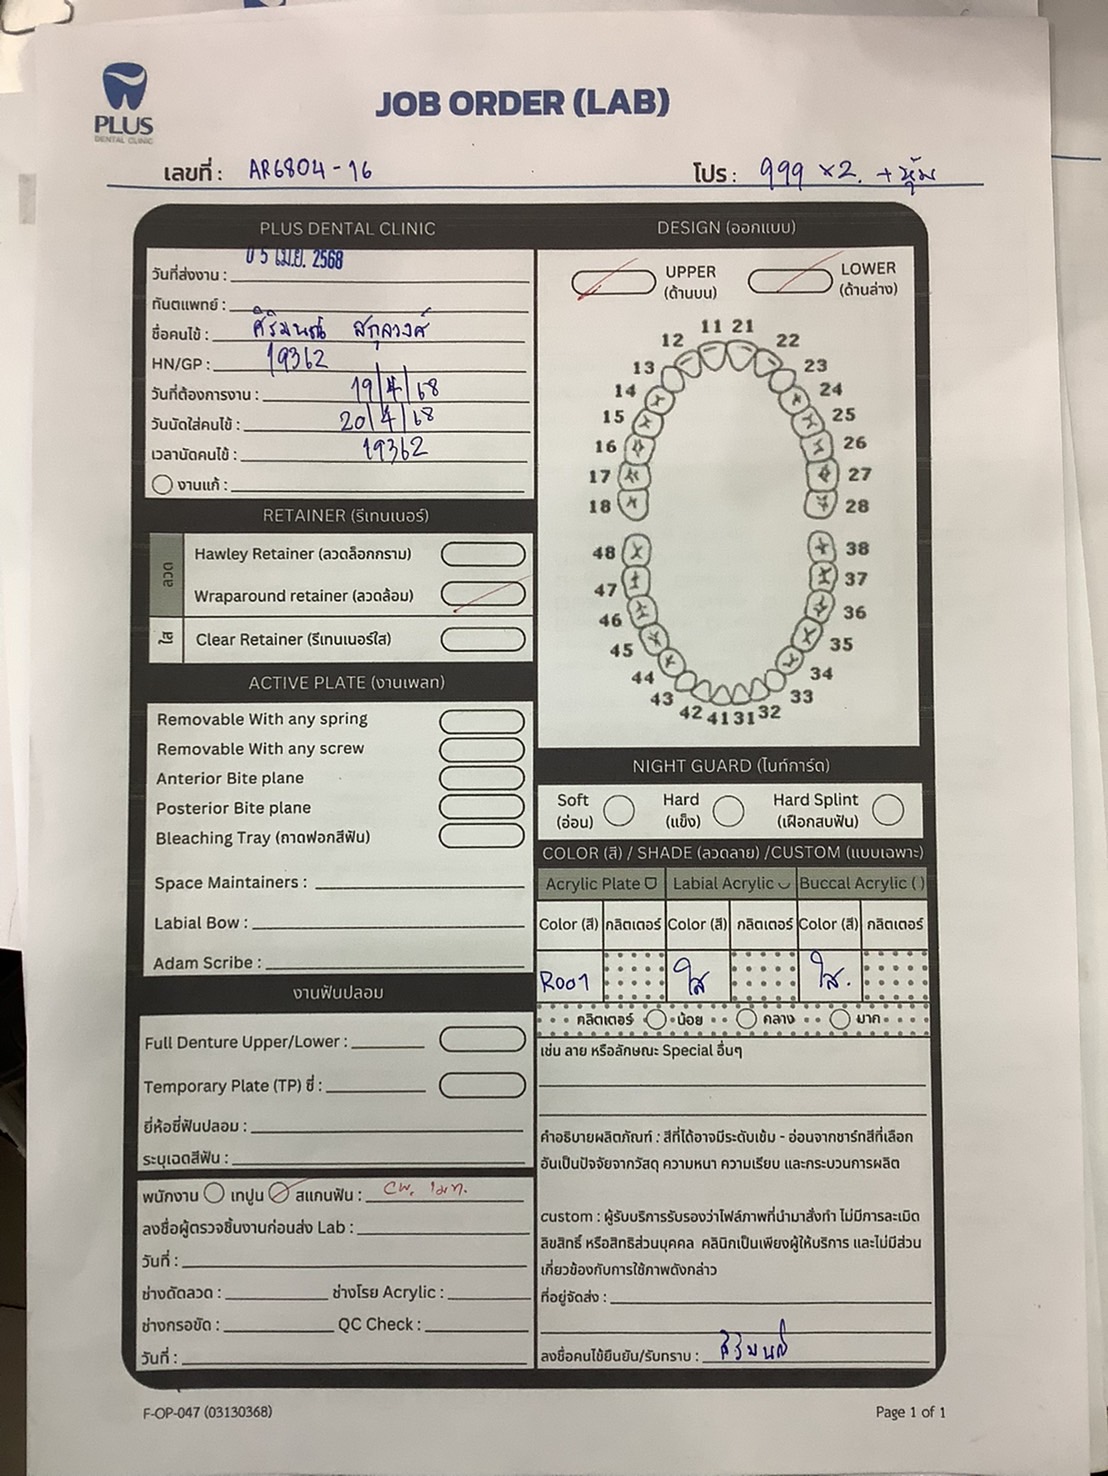 PLUS
DENTAL CLINIC
JOB ORDER (LAB)
เลขที่ : AR6804-16
โปร : 999 x2. +หุ้ม
PLUS DENTAL CLINIC
วันที่ส่งงาน : 05 เม.ย. 2568
ทันตแพทย์ :
ชื่อคนไข้ : ศิริมนต์ สกุลวงศ์
HN/GP : 19362
วันที่ต้องการงาน : 19/4/68
วันนัดใส่คนไข้ : 20/4/68
เวลานัดคนไข้ : 19362
งานแก้ :
RETAINER (รีเทนเนอร์)
ลวด
Hawley Retainer (ลวดล็อกกราม)
Wraparound retainer (ลวดล้อม)
ใส
Clear Retainer (รีเทนเนอร์ใส)
ACTIVE PLATE (งานเพลท)
Removable With any spring
Removable With any screw
Anterior Bite plane
Posterior Bite plane
Bleaching Tray (ถาดฟอกสีฟัน)
Space Maintainers :
Labial Bow :
Adam Scribe :
งานฟันปลอม
Full Denture Upper/Lower :
Temporary Plate (TP) ซี่ :
ยี่ห้อซี่ฟันปลอม :
ระบุเฉดสีฟัน :
พนักงาน เทปูน สแกนฟัน :
ลงชื่อผู้ตรวจชิ้นงานก่อนส่ง Lab :
วันที่ :
ช่างดัดลวด : ช่างโรย Acrylic :
ช่างกรอขัด : QC Check :
วันที่ :
DESIGN (ออกแบบ)
UPPER (ด้านบน)
LOWER (ด้านล่าง)
11 21
12 22
13 23
14 24
15 25
16 26
17 27
18 28
48 38
47 37
46 36
45 35
44 34
43 33
42 41 31 32
NIGHT GUARD (ไนท์การ์ด)
Soft (อ่อน) Hard (แข็ง) Hard Splint (เฝือกสบฟัน)
COLOR (สี) / SHADE (ลวดลาย) /CUSTOM (แบบเฉพาะ)
Acrylic Plate Labial Acrylic Buccal Acrylic ( )
Color (สี) กลิตเตอร์ Color (สี) กลิตเตอร์ Color (สี) กลิตเตอร์
R001 ใส ใส.
กลิตเตอร์ น้อย กลาง มาก
เช่น ลาย หรือลักษณะ Special อื่นๆ
คำอธิบายผลิตภัณฑ์ : สีที่ได้อาจมีระดับเข้ม - อ่อนจากชาร์ทสีที่เลือก
อันเป็นปัจจัยจากวัสดุ ความหนา ความเรียบ และกระบวนการผลิต
custom : ผู้รับบริการรับรองว่าไฟล์ภาพที่นำมาสั่งทำ ไม่มีการละเมิด
ลิขสิทธิ์ หรือสิทธิส่วนบุคคล คลินิกเป็นเพียงผู้ให้บริการ และไม่มีส่วน
เกี่ยวข้องกับการใช้ภาพดังกล่าว
ที่อยู่จัดส่ง :
ลงชื่อคนไข้ยืนยัน/รับทราบ : ศิริมนต์
F-OP-047 (03130368)
Page 1 of 1